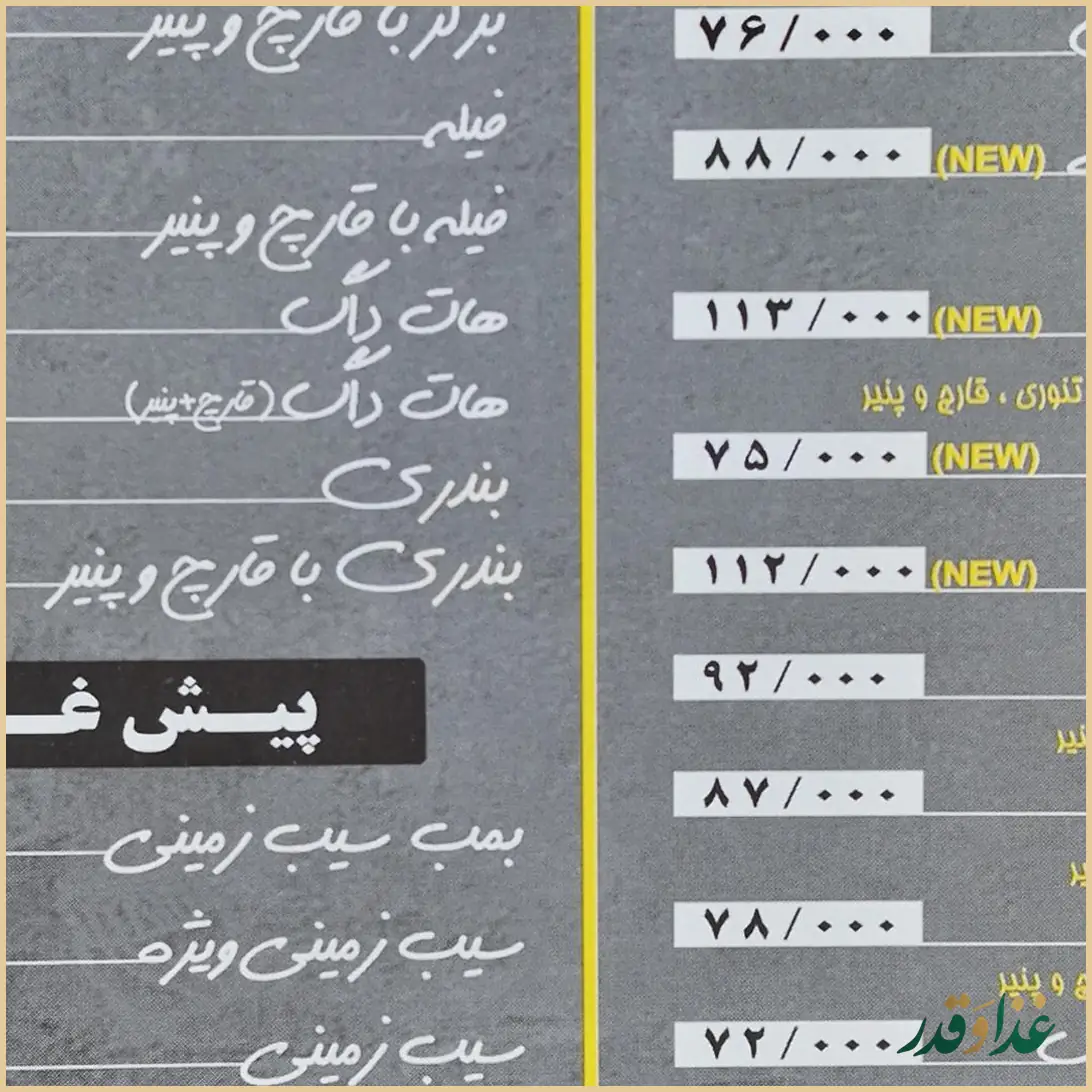 ۷۶/۰۰۰
۸۸/۰۰۰ (NEW)
۱۱۳/۰۰۰ (NEW)
تنوری ، قارچ و پنیر
۷۵/۰۰۰ (NEW)
۱۱۲/۰۰۰ (NEW)
۹۲/۰۰۰
۸۷/۰۰۰
۷۸/۰۰۰
و پنیر
۷۲/۰۰۰
غذا وَ قدر
برگر با قارچ و پنیر
فیله
فیله با قارچ و پنیر
هات داگ
هات داگ (قارچ+پنیر)
بندری
بندری با قارچ و پنیر
پیش غـ
بمب سیب زمینی
سیب زمینی ویژه
سیب زمینی